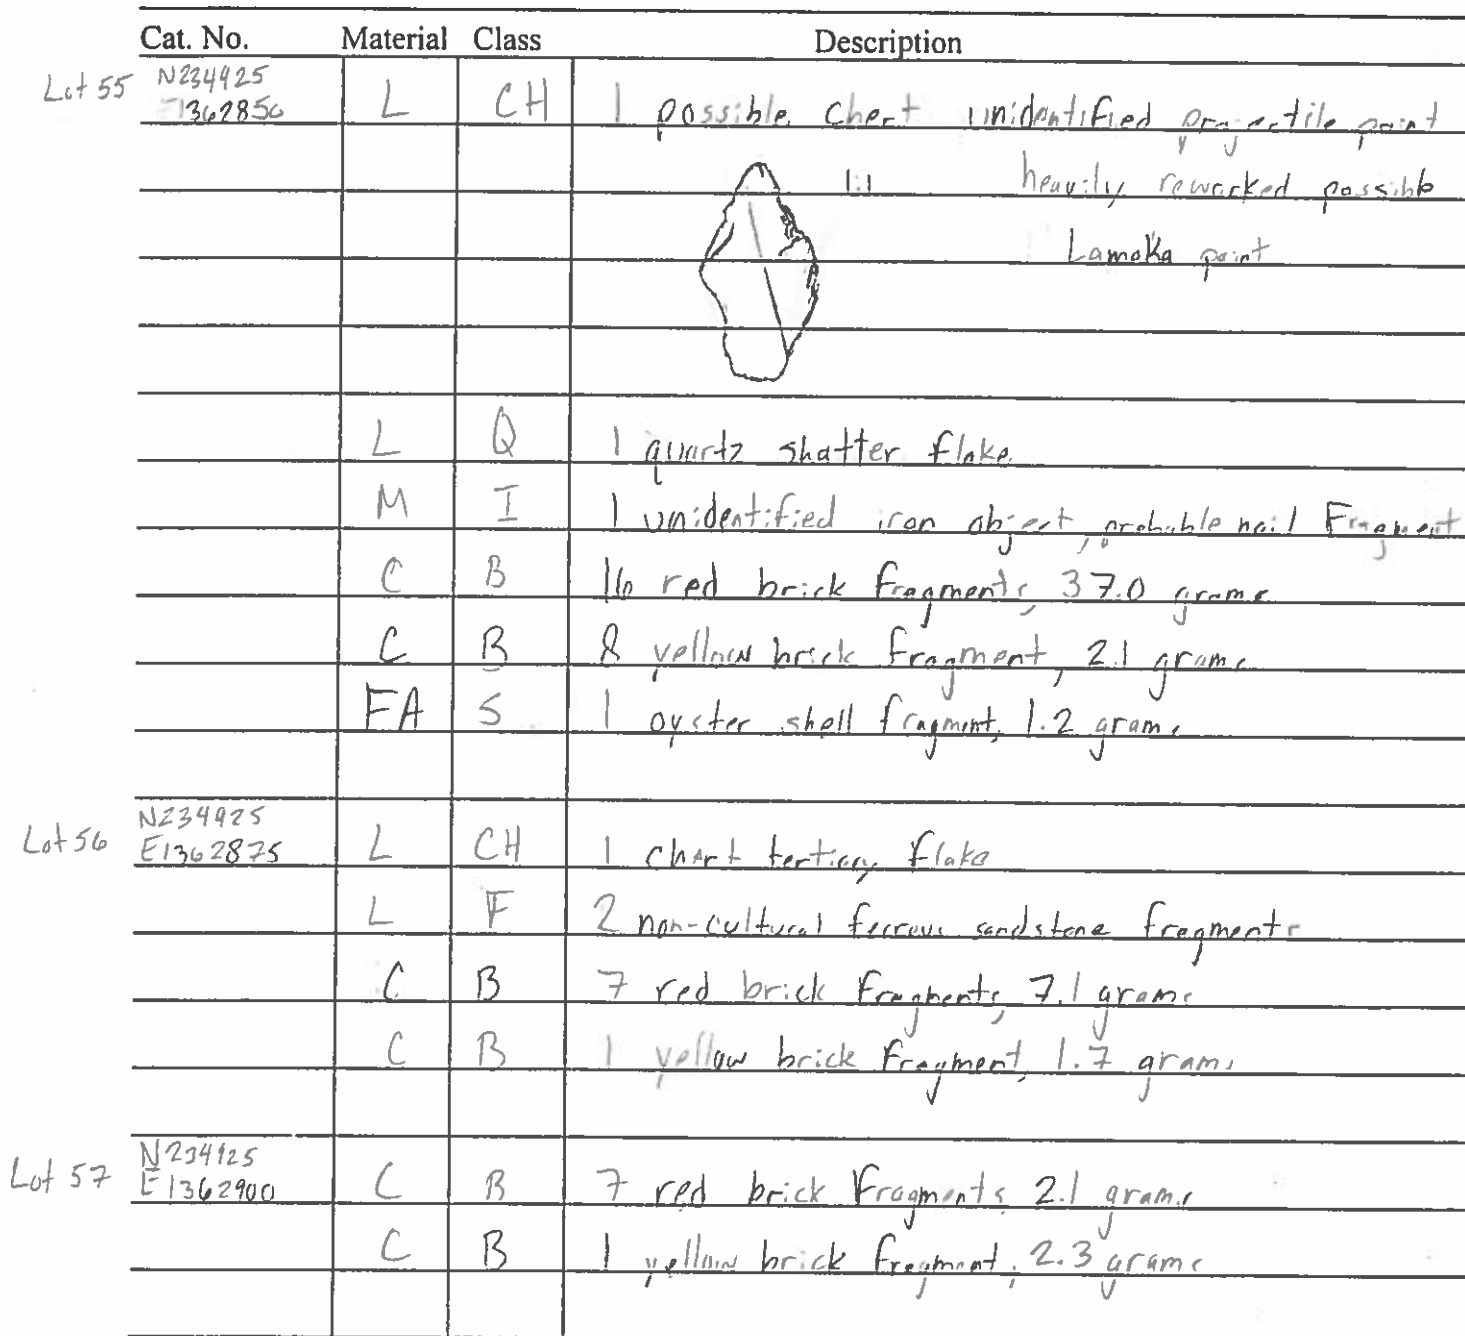 Cat. No. Material Class Description
Lot 55 N234925
E1362850 L CH 1 possible chert unidentified projectile point
1:1 heavily reworked possible
Lamoka point
L Q 1 quartz shatter flake
M I 1 unidentified iron object, probable nail Fragment
C B 16 red brick fragments, 37.0 grams
C B 8 yellow brick fragment, 2.1 grams
FA S 1 oyster shell fragment, 1.2 grams
Lot 56 N234925
E1362875 L CH 1 chert tertiary flake
L F 2 non-cultural ferrous sandstone fragments
C B 7 red brick fragments, 7.1 grams
C B 1 yellow brick fragment, 1.7 grams
Lot 57 N234925
E1362900 C B 7 red brick fragments, 2.1 grams
C B 1 yellow brick fragment, 2.3 grams